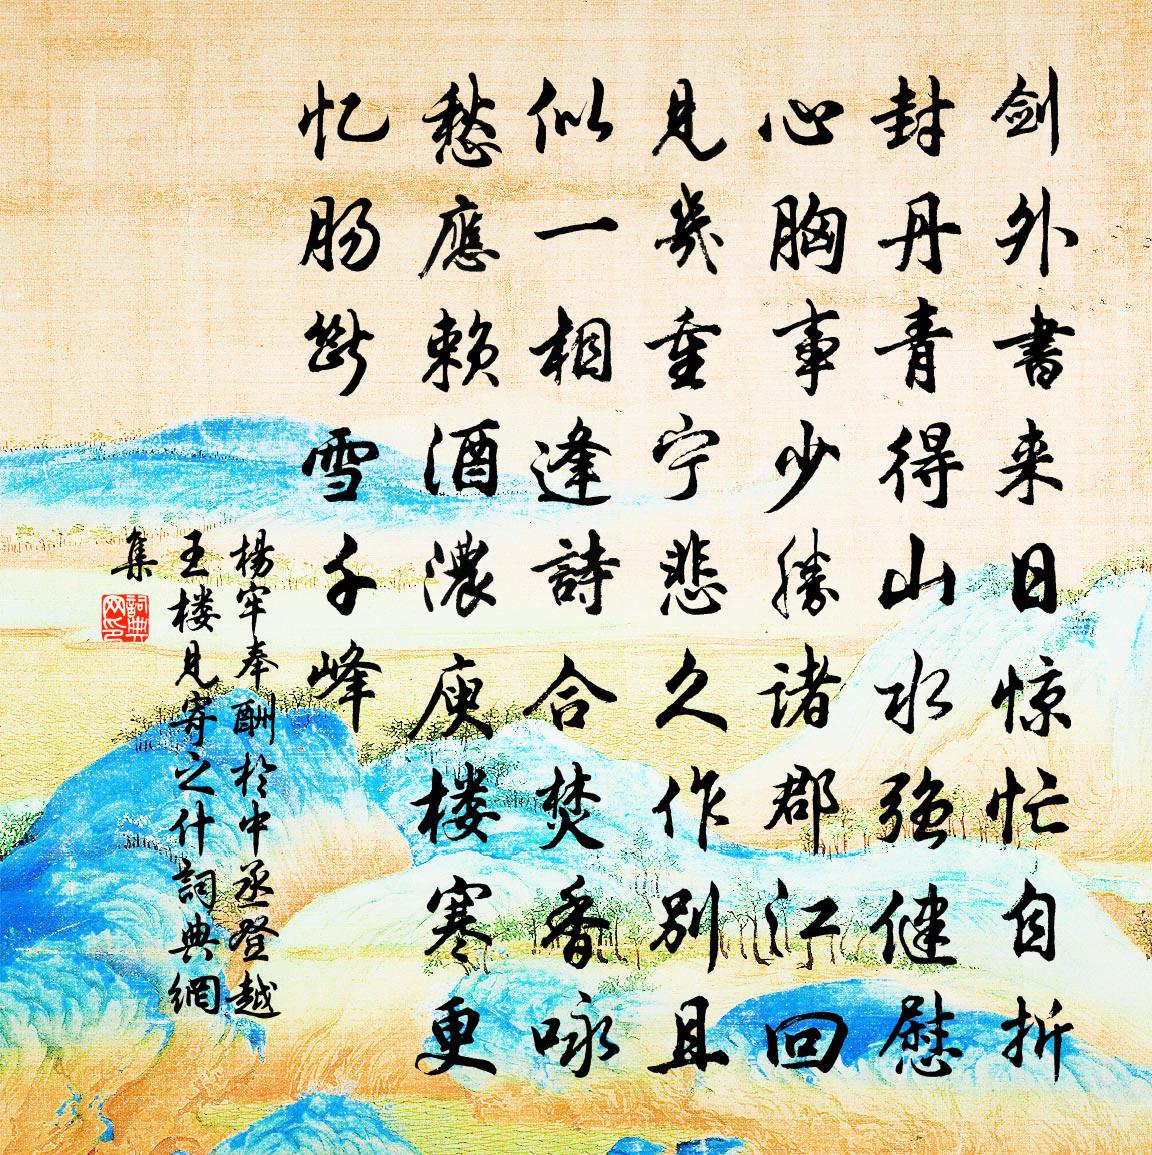 剑外书来日惊忙自折
封丹青得山水强健慰
心胸事少勝诸郡江回
見幾重宁悲久作别且
似一相逢詩合焚香咏
愁應赖酒濃庾楼寒更
忆肠断雪千峰
楊牢奉酬於中丞登越
王楼見寄之什詞典網
集